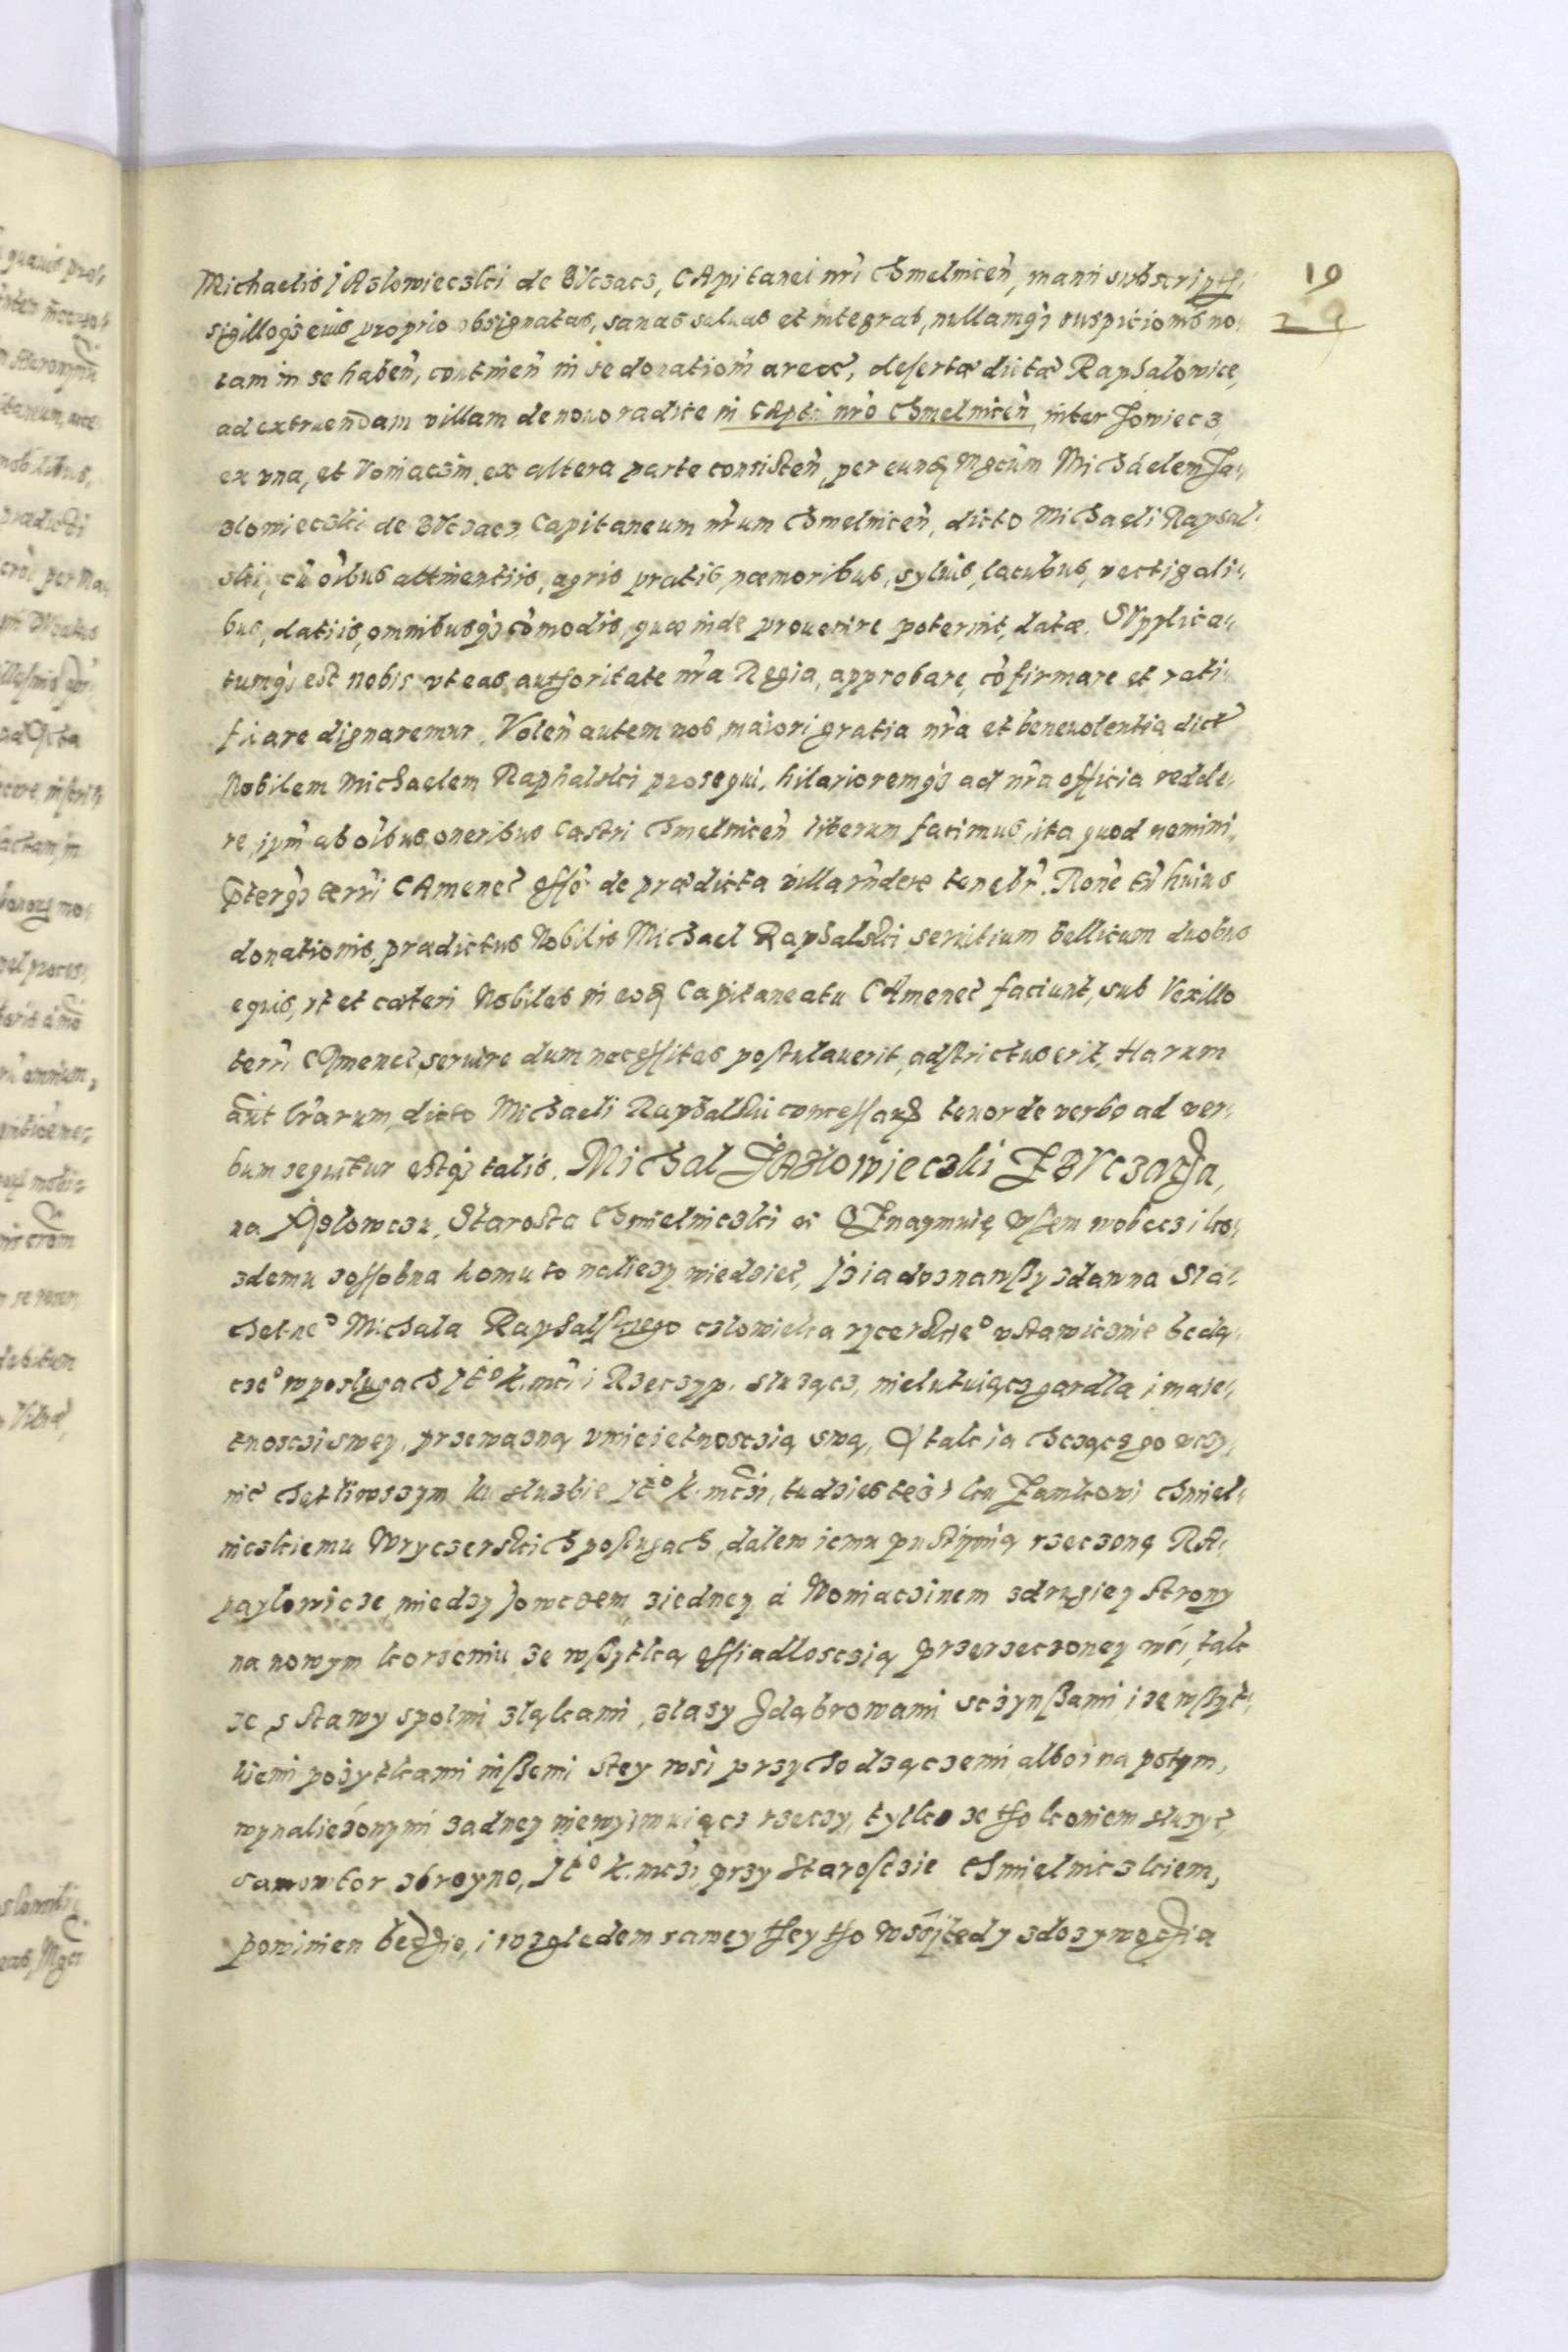 19
29
Michaelis JAzlowieczki de BUczacz, CApitanei nr̃i Chmelnicen̄, manu subscriptas
sigilloq̃ eius proprio obsignatas, sanas saluas et integras, nullamq̃ suspicionis no-
tam in se haben̄, continen̄ in se donationem areæ, desertæ dictæ Raphalowice,
ad extruendam villam de nouo radice in CAptu nr̃o Chmelnicen̄ inter Jowiecz
ex vna, et Voniaczin ex altera parte consisten̄, per eund Mgcum Michaelem Ja-
zlowieczki de BUczacz, Capitaneum nr̃um Chmelnicen̄, dicto Michaeli Raphal-
ski, cū oībus attinentiis, agris pratis, næmoribus, syluis, lacubus, vectigali-
bus, datiis, omnibusq̃ cōmodis, quæ inde prouenire poterint, datæ. SVpplica-
tumq̃ est nobis vt eas authoritate nr̃a Regia, approbare, cōfirmare et rati-
ficare dignaremur. Volen̄ autem nos maiori gratia nr̃a et beneuolentia dict
Nobilem Michaelem Raphalski prosequi, hilarioremq̃ ad nr̃a officia redde-
re, ipm̄ ab oībus oneribus Castri Chmelnicen̄ liberum facimus, ita quod nemini
p̃terq̃ terri CAmenec̄ de prædicta villa tenebr̃. Rone tn̄ huius
donationis, prædictus Nobilis Michael Raphalski seruitium bellicum duobus
equis, vt et cæteri Nobiles in eod Capitaneatu CAmenec̄ faciunt, sub Vexillo
terri CAmenec̄, seruire dum necessitas postulauerit, adstrictus erit. Harum
aūt lr̃arum, dicto Michaeli Raphalskii concessaꝝ tenor de verbo ad ver-
bum sequitur estq̃ talis. Michal JAzlowieczki Z BVczacza,
na Azlowczu, Starosta Chmielniczki ec OZnaymuię wssem wobecz i ko-
zdemu zossobna komu to naliezy wiedziec, Jz ia doznawssy zdawna Sla-
chetneo Michala Raphalskiego czlowieka rycerskieo vstawicznie będą-
czeo wposlugach JEo K. mci i Rzeczyp. sluzącz, nielutuiącz gardla i maie-
tnosczi swey, przeważną vmieietnosczią swą, A tak ia chcącz go vczy-
nić chętliwszym ku sluzbie JEo K. mczi, tudzies tez i ku Zamkowi Chmiel-
niczkiemu Wryczerskich poslugach, dalem iemu pustynią rzeczoną RA-
paylowicze, miedzy Jowczem, ziedney a Woniaczinem zdrugiey strony
na nowym korzeniu ze wszytką ossiadlosczią przerzeczoney wśi, tak
ze s stawy spolmi złąkami, zlasy Jdąbrowami sczynssami i ze wssyt-
kiemi pozytkami inssemi stey wsi przychodzączemi albo i na potym,
wynaliezionymi zadney niewyimuiącz rzeczy, tylko ze tho koniem sluzyc,
samowtor zbroyno, JEo K. mczi, przy Starosczie Chmielniczkiem,
powinien będzie, i wzgledem samey they tho wsi, tedy zdozywoczia